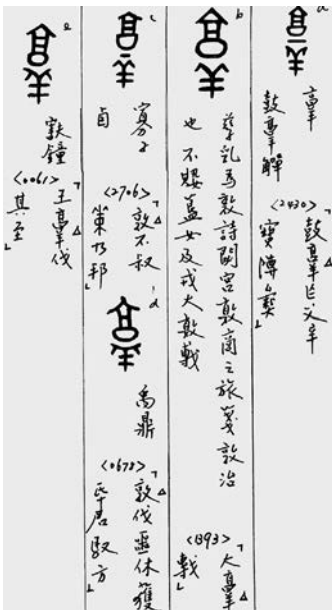 a
𦎫
鼓𦎫觶
<2430>
「鼓𦎫乍父辛
寶彝」
b
孳乳為敦詩閟宮敦商之旅箋敦治
也 不簋女及戎大敦
<1393>
「大𦎫
」
c
寡子
卣
<2706>
「敦不叔
乃邦」
d
禹鼎
<0678>
「敦伐噩休獲
氒君馭方」
e
㝬鐘
<0061>
「王𦎫伐
其至」